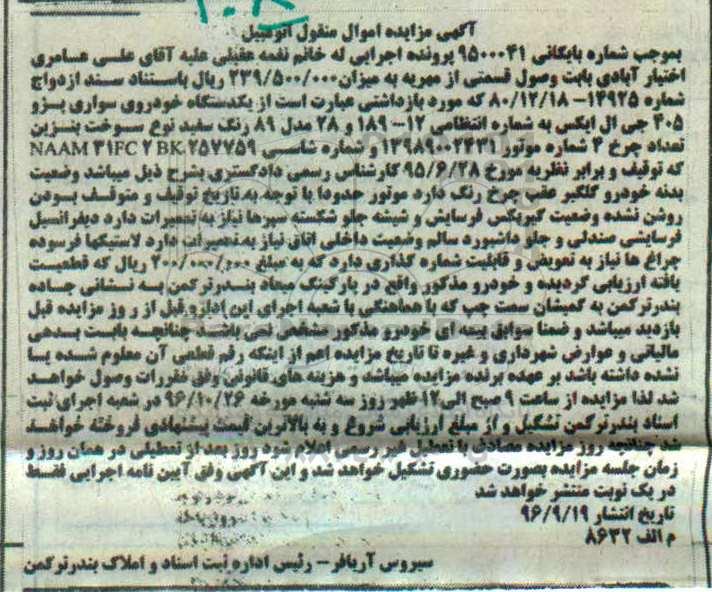 آگهی مزایده اموال منقول اتومبیل
بموجب شماره بایگانی ۹۵۰۰۰۴۱ پرونده اجرایی له خانم نغمه عقیلی علیه آقای علی عامری
اختیار آبادی بابت وصول قسمتی از مهریه به میزان ۲۳۹/۵۰۰/۰۰۰ ریال باستناد سند ازدواج
شماره ۱۴۹۲۵– ۸۰/۱۲/۱۸ که مورد بازداشتی عبارت است از یکدستگاه خودروی سواری پژو
۴۰۵ جی ال ایکس به شماره انتظامی ۱۲– ۱۸۹ و ۲۸ مدل ۸۹ رنگ سفید نوع سوخت بنزین
تعداد چرخ ۴ شماره موتور ۱۲۴۸۹۰۰۲۴۳۱ و شماره شاسی NAAM ۳۱FC ۲ BK ۲۵۷۷۵۹
که توقیف و برابر نظریه مورخ ۹۵/۶/۲۸ کارشناس رسمی دادگستری بشرح ذیل میباشد وضعیت
بدنه خودرو گلگیر عقب چرخ رنگ دارد موتور حدودا با توجه به تاریخ توقیف و متوقف بودن
روشن نشده وضعیت گیربکس فرسایش و شیشه جلو شکسته سپرها نیاز به تعمیرات دارد دیفرانسیل
فرسایشی صندلی و جلو داشبورد سالم وضعیت داخلی اتاق نیاز به تعمیرات دارد لاستیکها فرسوده
چراغ ها نیاز به تعویض و قابلیت شماره گذاری دارد که به مبلغ ۲۰۰/۰۰۰/۰۰۰ ریال که قطعیت
یافته ارزیابی گردیده و خودرو مذکور واقع در پارکینگ میعاد بندرترکمن به نشانی جاده
بندرترکمن به گمیشان سمت چپ که با هماهنگی با شعبه اجرای این اداره قبل از روز مزایده قبل
بازدید میباشد و ضمنا سوابق بیمه ای خودرو مذکور مشخص نمی باشد چنانچه بابت بدهی
مالیاتی و عوارض شهرداری و غیره تا تاریخ مزایده اهم از اینکه رقم قطعی آن معلوم شده یا
نشده داشته باشد بر عهده برنده مزایده میباشد و هزینه های قانونی وفق مقررات وصول خواهد
شد لذا مزایده از ساعت ۹ صبح الی ۱۲ ظهر روز سه شنبه مورخه ۹۶/۱۰/۲۶ در شعبه اجرای ثبت
اسناد بندرترکمن تشکیل و از مبلغ ارزیابی شروع و به بالاترین قیمت پیشنهادی فروخته خواهد
شد چنانچه روز مزایده مصادف با تعطیل غیر رسمی اعلام شود روز بعد از تعطیلی در همان روز و
زمان جلسه مزایده بصورت حضوری تشکیل خواهد شد و این آگهی وفق آیین نامه اجرایی فقط
در یک نوبت منتشر خواهد شد
تاریخ انتشار ۹۶/۹/۱۹
م الف ۸۶۳۲
سیروس آریافر – رئیس اداره ثبت اسناد و املاک بندرترکمن